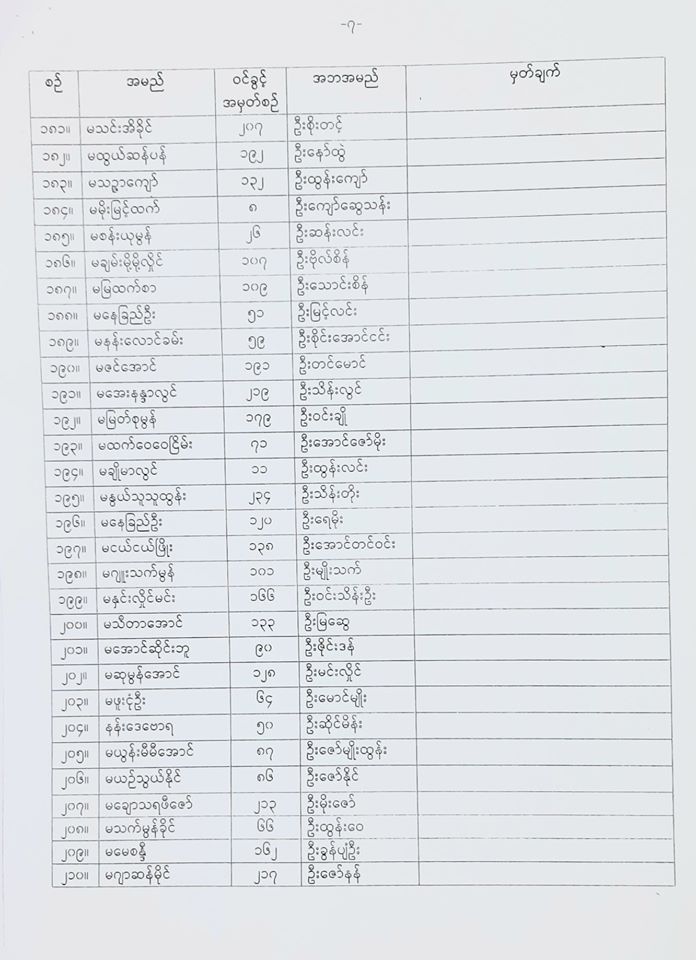 -၇-
စဉ် အမည် ဝင်ခွင့်အမှတ်စဉ် အဘအမည် မှတ်ချက်
၁၈၁။ မသင်းအိခိုင် ၂၀၇ ဦးစိုးတင့်
၁၈၂။ မထွယ်ဆန်ပန် ၁၉၂ ဦးနော်ထွဲ
၁၈၃။ မသဥ္ဇာကျော် ၁၃၂ ဦးထွန်းကျော်
၁၈၄။ မမိုးမြင့်ထက် ၈ ဦးကျော်ဆွေသန်း
၁၈၅။ မစန်းယုမွန် ၂၆ ဦးဆန်းလင်း
၁၈၆။ မချမ်းမို့မို့လှိုင် ၁၀၇ ဦးဗိုလ်စိန်
၁၈၇။ မမြထက်စာ ၁၀၉ ဦးသောင်းစိန်
၁၈၈။ မနေခြည်ဦး ၅၁ ဦးမြင့်လင်း
၁၈၉။ မနန်းလောင်ခမ်း ၅၉ ဦးစိုင်းအောင်ငင်း
၁၉၀။ မဇင်အောင် ၁၉၁ ဦးတင်မောင်
၁၉၁။ မအေးနန္ဒာလွင် ၂၁၉ ဦးသိန်းလွင်
၁၉၂။ မမြတ်စုမွန် ၁၇၉ ဦးဝင်းချို
၁၉၃။ မထက်ဝေဝေငြိမ်း ၇၁ ဦးအောင်ဇော်မိုး
၁၉၄။ မချိုမာလွင် ၁၁ ဦးထွန်းလင်း
၁၉၅။ မနွယ်သူသူထွန်း ၂၃၄ ဦးသိန်းတိုး
၁၉၆။ မနေခြည်ဦး ၁၂၀ ဦးရေမိုး
၁၉၇။ မငယ်ငယ်ဖြိုး ၁၃၈ ဦးအောင်တင်ဝင်း
၁၉၈။ မဂျူးသက်မွန် ၁၀၁ ဦးမျိုးသက်
၁၉၉။ မနှင်းလှိုင်မင်း ၁၆၆ ဦးဝင်းသိန်းဦး
၂၀၀။ မသီတာအောင် ၁၃၃ ဦးမြဆွေ
၂၀၁။ မအောင်ဆိုင်းဘူ ၉၀ ဦးဇိုင်းဒန်
၂၀၂။ မဆုမွန်အောင် ၁၂၈ ဦးမင်းလှိုင်
၂၀၃။ မဖူးငုံဦး ၆၄ ဦးမောင်မျိုး
၂၀၄။ နန်းဒေဗောရ ၅၀ ဦးဆိုင်မိန်း
၂၀၅။ မယွန်းမီမီအောင် ၈၇ ဦးဇော်မျိုးထွန်း
၂၀၆။ မယဉ်သွယ်နိုင် ၈၆ ဦးဇော်နိုင်
၂၀၇။ မချောသရဖီဇော် ၂၁၃ ဦးမိုးဇော်
၂၀၈။ မသက်မွန်ခိုင် ၆၆ ဦးထွန်းဝေ
၂၀၉။ မမေစန္ဒီ ၁၆၂ ဦးခွန်ပျံဦး
၂၁၀။ မဂျာဆန်မိုင် ၂၁၇ ဦးဇော်နန်